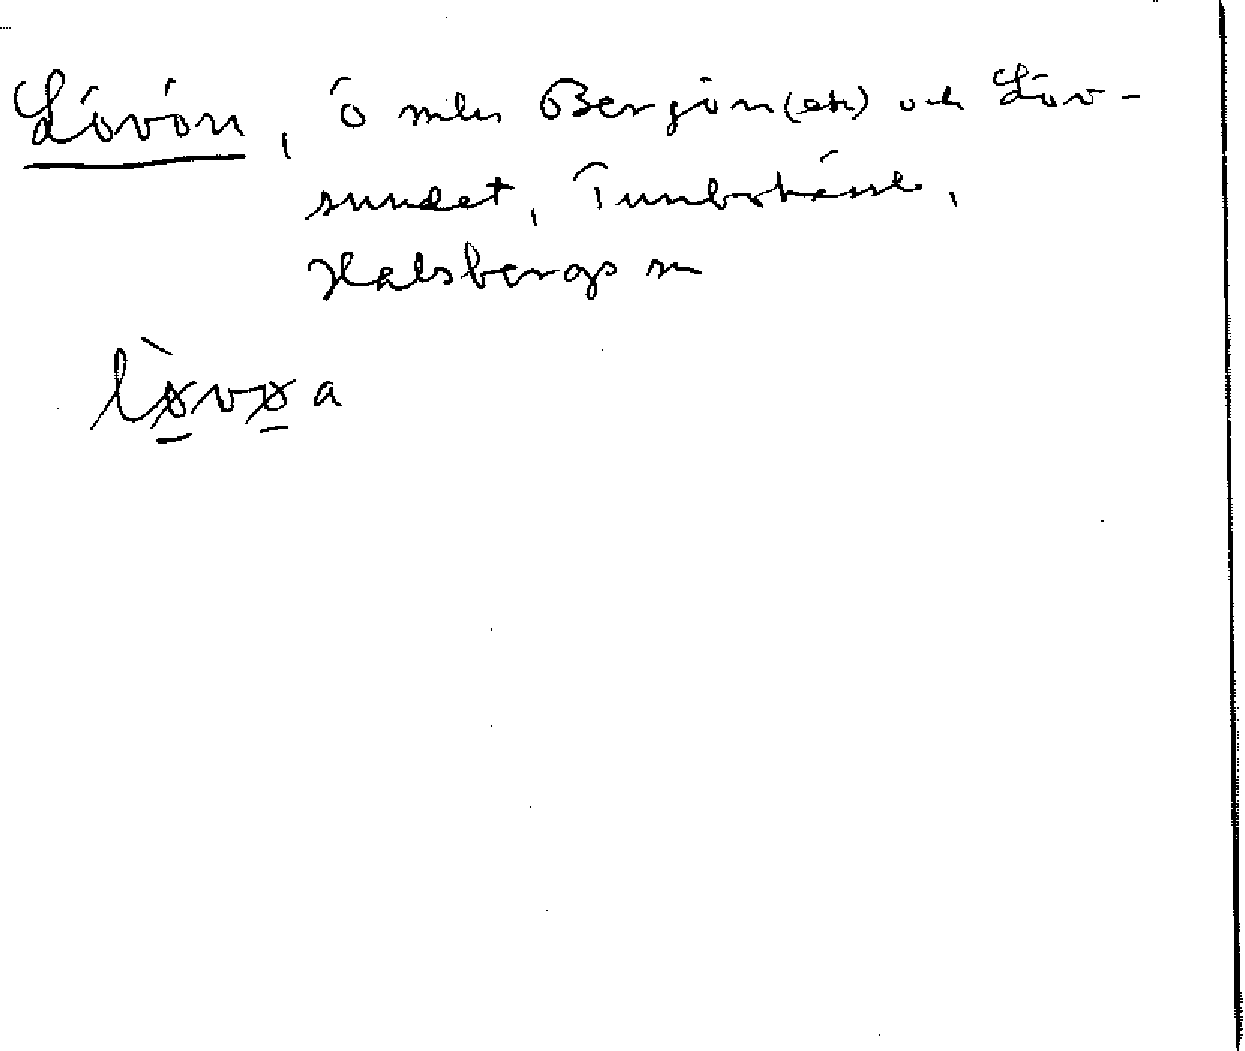 Lövön, ö mln Bergön (ek) och Löv-
sundet, Tunbokärret,
Halsbergs sn
lø̀vøa